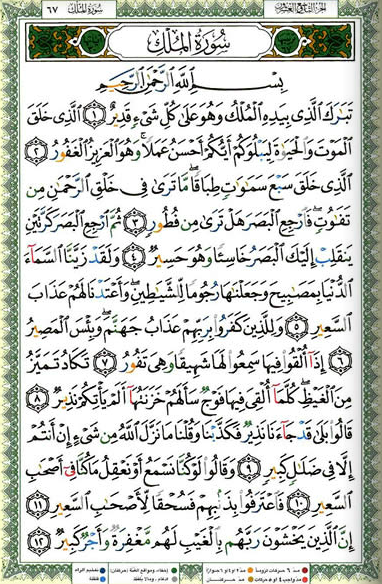 الجزء التاسع والعشرون
٦٧
سورة الملك
سُورَةُ المُلْكِ
بِسْمِ اللَّهِ الرَّحْمَٰنِ الرَّحِيمِ
تَبَٰرَكَ الَّذِي بِيَدِهِ الْمُلْكُ وَهُوَ عَلَىٰ كُلِّ شَيْءٍ قَدِيرٌ ١ الَّذِي خَلَقَ
الْمَوْتَ وَالْحَيَوٰةَ لِيَبْلُوَكُمْ أَيُّكُمْ أَحْسَنُ عَمَلًا ۚ وَهُوَ الْعَزِيزُ الْغَفُورُ ٢
الَّذِي خَلَقَ سَبْعَ سَمَٰوَٰتٍ طِبَاقًا ۖ مَّا تَرَىٰ فِي خَلْقِ الرَّحْمَٰنِ مِن
تَفَٰوُتٍ ۖ فَارْجِعِ الْبَصَرَ هَلْ تَرَىٰ مِن فُطُورٍ ٣ ثُمَّ ارْجِعِ الْبَصَرَ كَرَّتَيْنِ
يَنقَلِبْ إِلَيْكَ الْبَصَرُ خَاسِئًا وَهُوَ حَسِيرٌ ٤ وَلَقَدْ زَيَّنَّا السَّمَاءَ
الدُّنْيَا بِمَصَٰبِيحَ وَجَعَلْنَٰهَا رُجُومًا لِّلشَّيَٰطِينِ ۖ وَأَعْتَدْنَا لَهُمْ عَذَابَ
السَّعِيرِ ٥ وَلِلَّذِينَ كَفَرُوا بِرَبِّهِمْ عَذَابُ جَهَنَّمَ ۖ وَبِئْسَ الْمَصِيرُ
٦ إِذَا أُلْقُوا فِيهَا سَمِعُوا لَهَا شَهِيقًا وَهِيَ تَفُورُ ٧ تَكَادُ تَمَيَّزُ
مِنَ الْغَيْظِ ۖ كُلَّمَا أُلْقِيَ فِيهَا فَوْجٌ سَأَلَهُمْ خَزَنَتُهَا أَلَمْ يَأْتِكُمْ نَذِيرٌ ٨
قَالُوا بَلَىٰ قَدْ جَاءَنَا نَذِيرٌ فَكَذَّبْنَا وَقُلْنَا مَا نَزَّلَ اللَّهُ مِن شَيْءٍ إِنْ أَنتُمْ
إِلَّا فِي ضَلَٰلٍ كَبِيرٍ ٩ وَقَالُوا لَوْ كُنَّا نَسْمَعُ أَوْ نَعْقِلُ مَا كُنَّا فِي أَصْحَٰبِ
السَّعِيرِ ١٠ فَاعْتَرَفُوا بِذَنبِهِمْ فَسُحْقًا لِّأَصْحَٰبِ السَّعِيرِ ١١
إِنَّ الَّذِينَ يَخْشَوْنَ رَبَّهُم بِالْغَيْبِ لَهُم مَّغْفِرَةٌ وَأَجْرٌ كَبِيرٌ ١٢